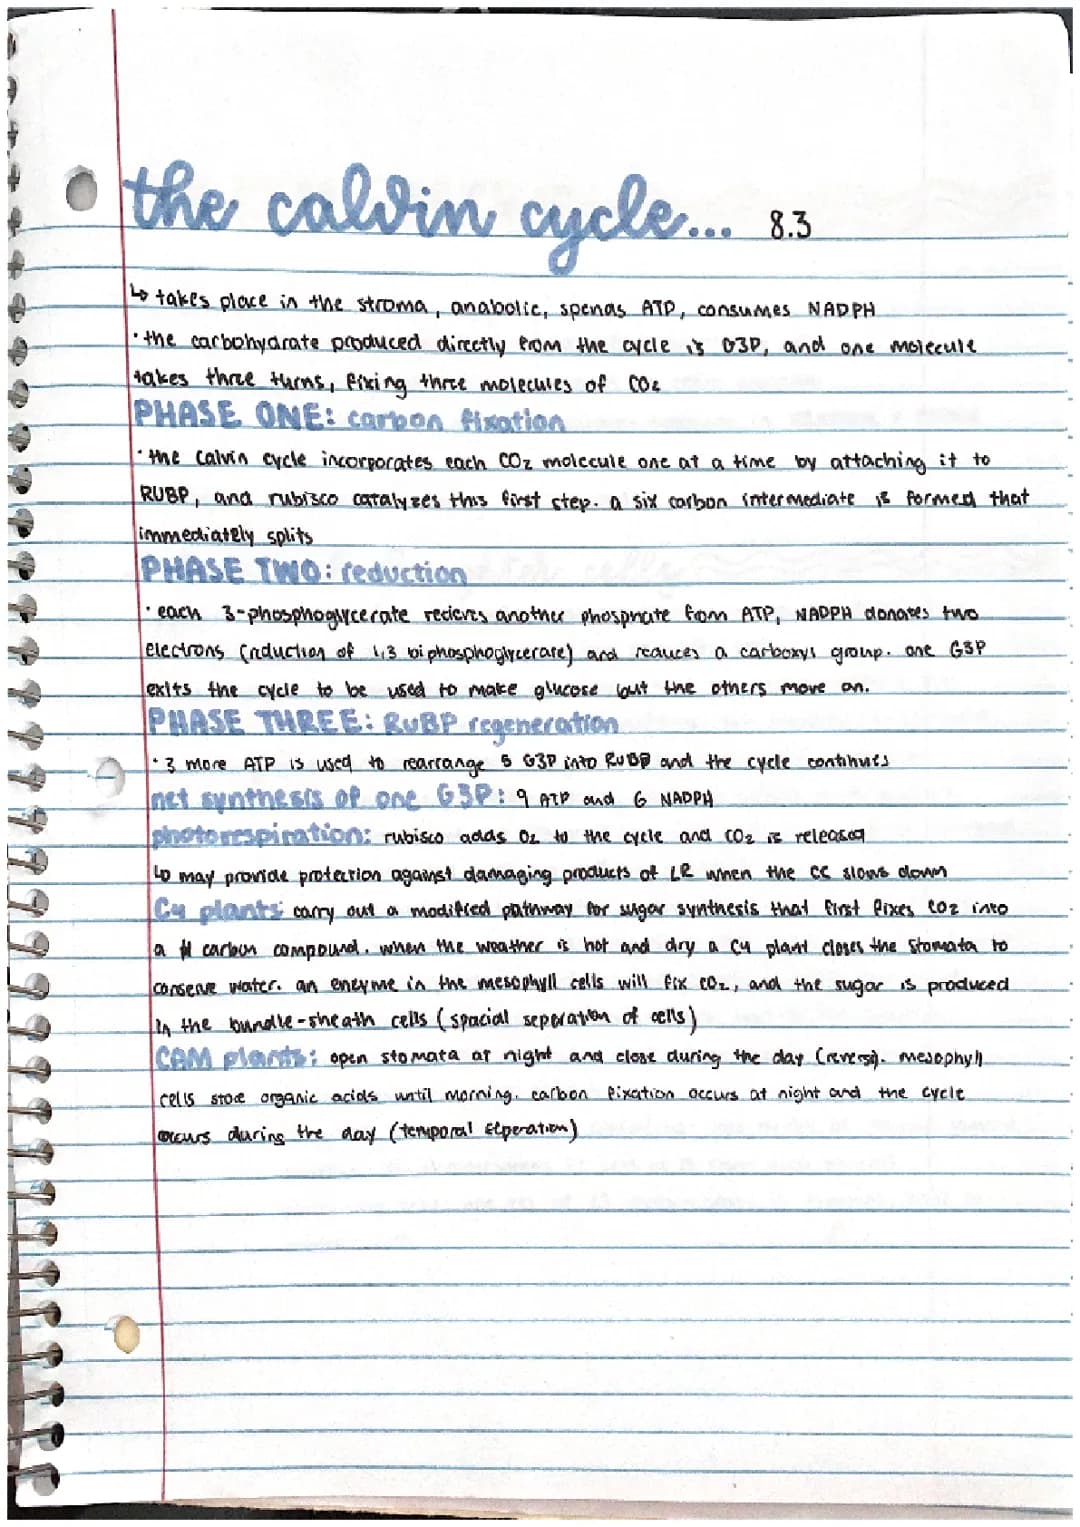 the calvin cycle... 8.3
↳ takes place in the stroma, anabolic, spends ATP, consumes NADPH
· the carbohydrate produced directly from the cycle is G3P, and one molecule
takes three turns, fixing three molecules of CO2
PHASE ONE: carbon fixation
· the calvin cycle incorporates each CO2 molecule one at a time by attaching it to
RUBP, and rubisco catalyzes this first step. a six carbon intermediate is formed that
immediately splits
PHASE TWO: reduction
· each 3-phosphoglycerate recieves another phosphate from ATP, NADPH donates two
electrons (reduction of 1,3 biphosphoglycerate) and reduces a carboxyl group. one G3P
exits the cycle to be used to make glucose but the others move on.
PHASE THREE: RuBP regeneration
· 3 more ATP is used to rearrange 5 G3P into RUBP and the cycle continues
net synthesis of one G3P: 9 ATP and 6 NADPH
photorespiration: rubisco adds O2 to the cycle and CO2 is released
↳ may provide protection against damaging products of LR when the CC slows down
C4 plants: carry out a modified pathway for sugar synthesis that first fixes CO2 into
a 4 carbon compound. when the weather is hot and dry a C4 plant closes the stomata to
conserve water. an enzyme in the mesophyll cells will fix CO2, and the sugar is produced
in the bundle-sheath cells (spacial seperation of cells)
CAM plants: open stomata at night and close during the day (reverse). mesophyll
cells store organic acids until morning. carbon fixation occurs at night and the cycle
occurs during the day (temporal seperation)